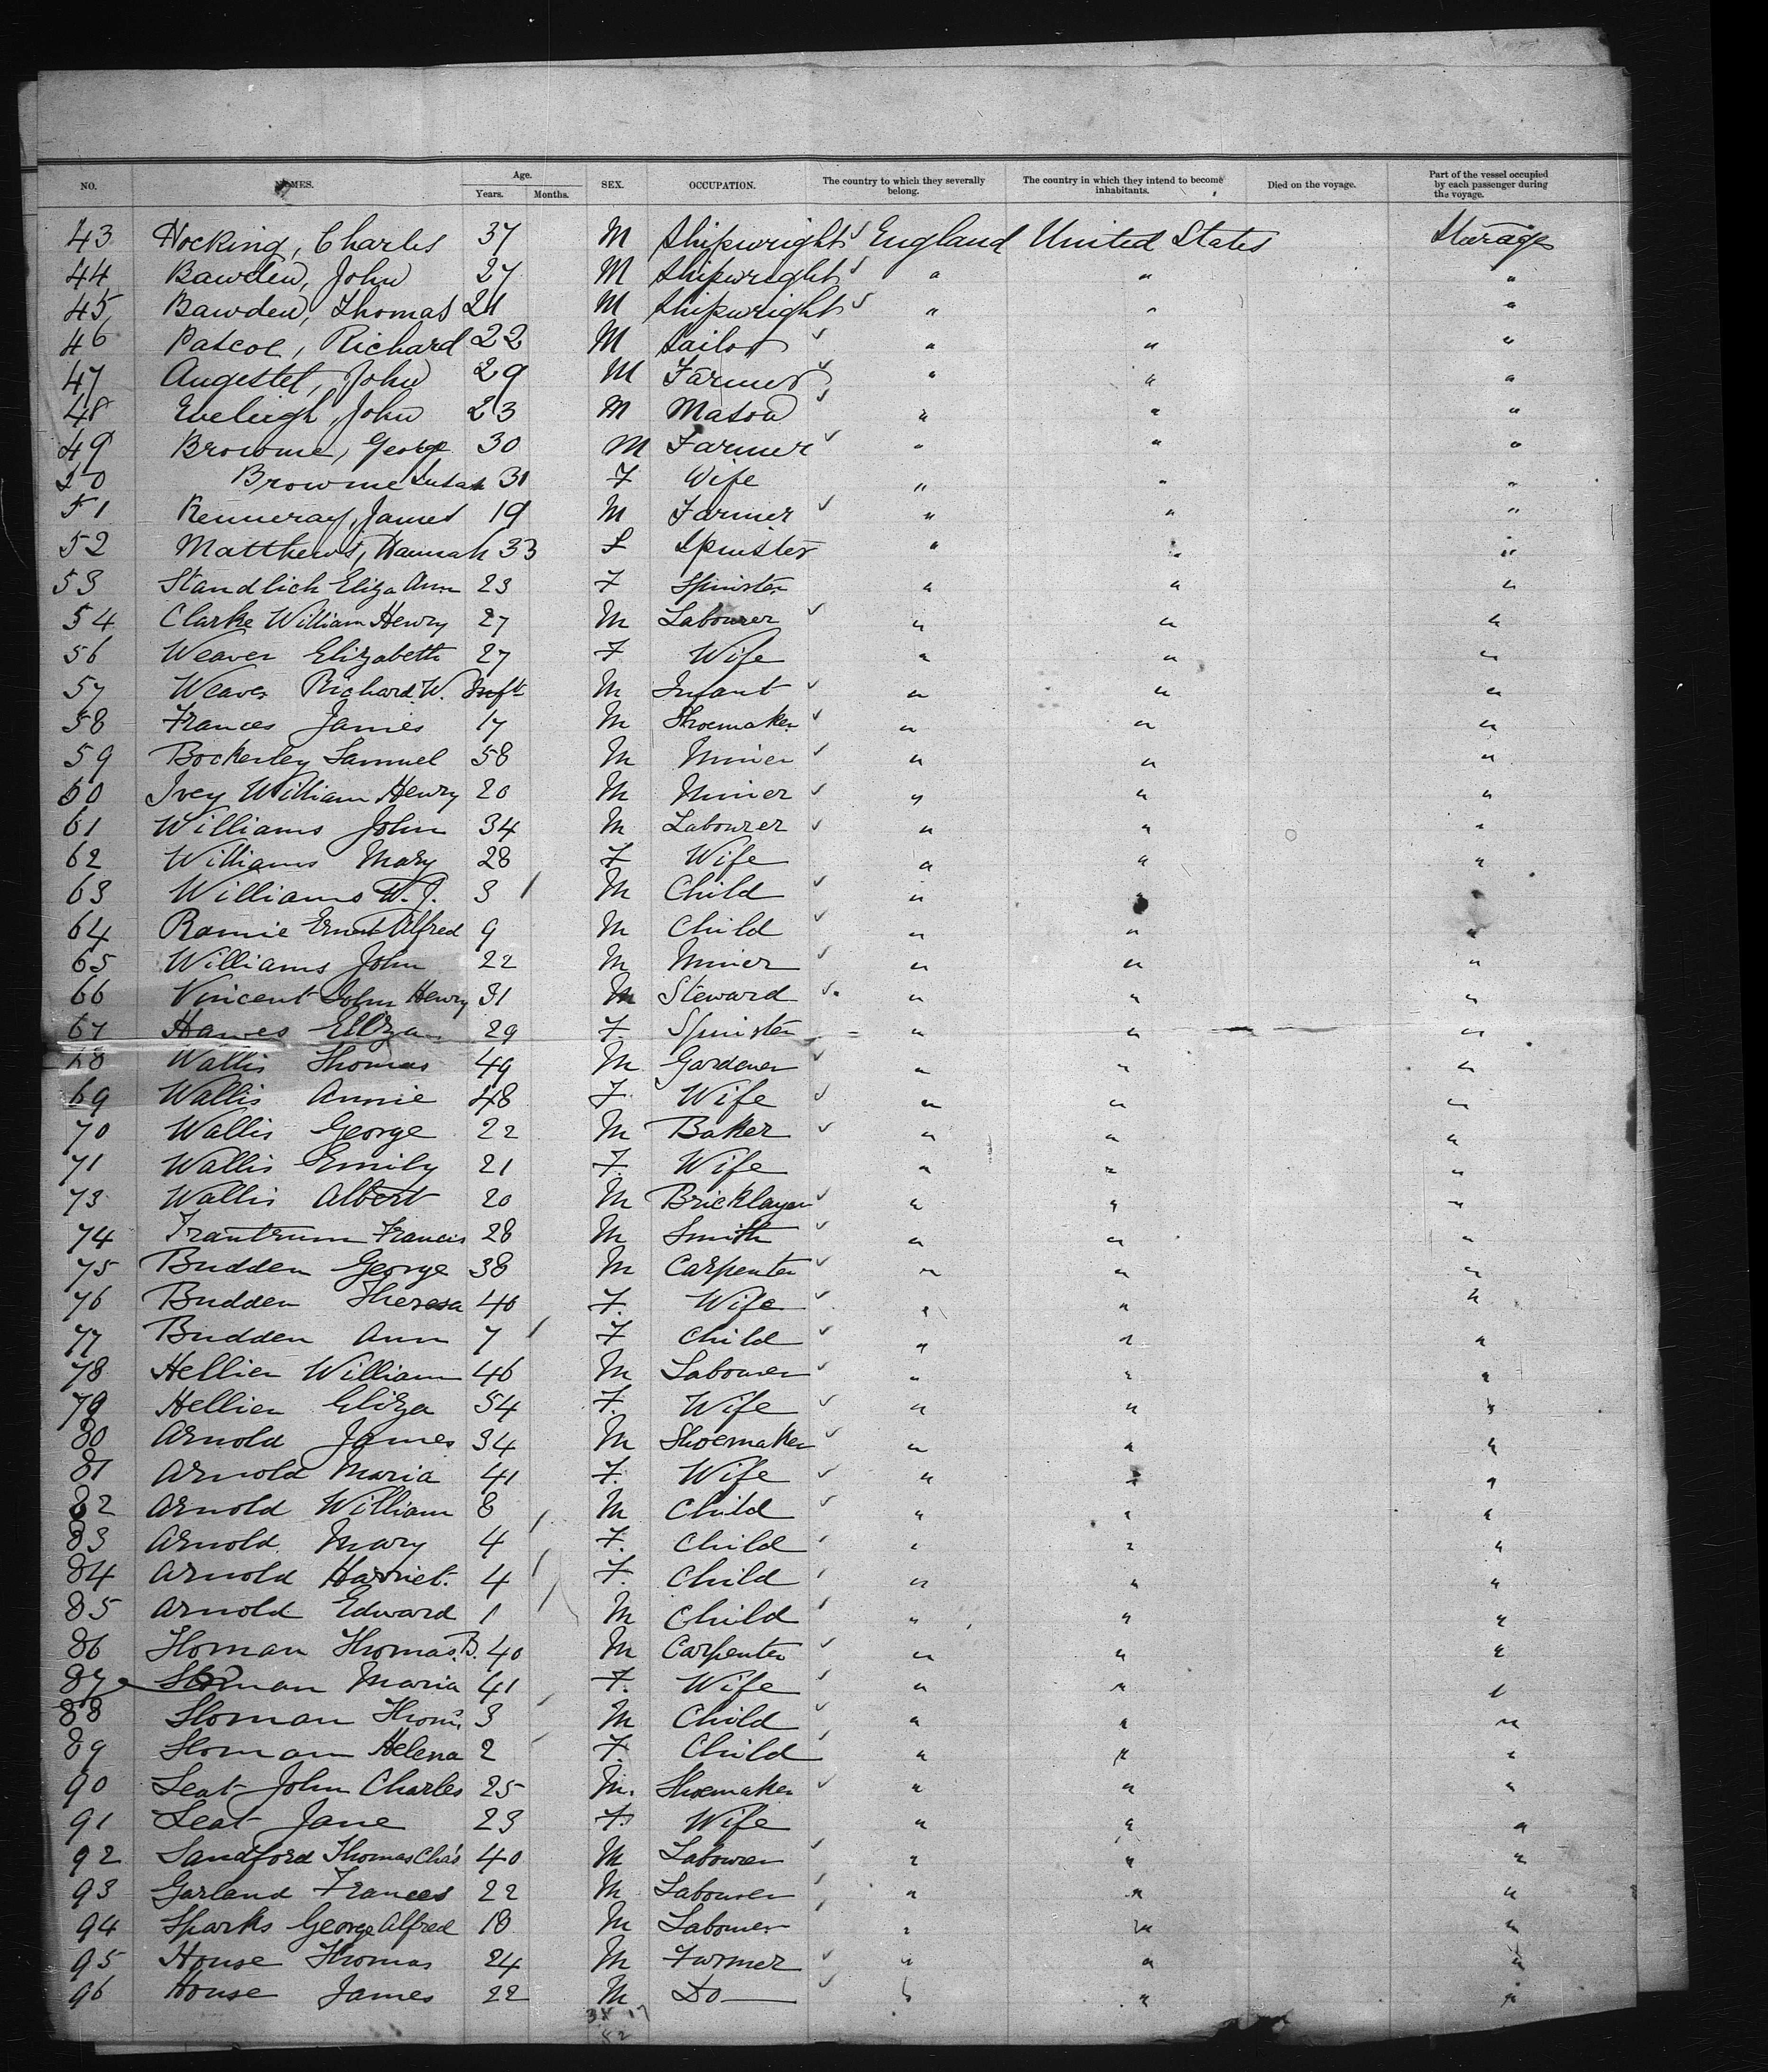 NO. NAMES. Age. Years. Months. SEX. OCCUPATION. The country to which they severally belong. The country in which they intend to become inhabitants. Died on the voyage. Part of the vessel occupied by each passenger during the voyage.
43 Hocking, Charles 37 M Shipwright England United States Steerage
44 Bawden, John 27 M Shipwright " " "
45 Bawden, Thomas 21 M Shipwright " " "
46 Pascoe, Richard 22 M Sailor " " "
47 Augestet, John 29 M Farmer " " "
48 Eveleigh, John 23 M Mason " " "
49 Browne, George 30 M Farmer " " "
50 Browne Susan 31 F Wife " " "
51 Kenneray, James 19 M Farmer " " "
52 Matthews, Hannah 33 F Spinster " " "
53 Standlich Eliza Ann 23 F Spinster " " "
54 Clarke William Henry 27 M Labourer " " "
56 Weaver Elizabeth 27 F Wife " " "
57 Weaver Richard W. Inft M Infant " " "
58 Frances James 17 M Shoemaker " " "
59 Bockerley Samuel 58 M Miner " " "
60 Ivey William Henry 20 M Miner " " "
61 Williams John 34 M Labourer " " "
62 Williams Mary 28 F Wife " " "
63 Williams W. J. 3 M Child " " "
64 Ramie Ernest Alfred 9 M Child " " "
65 Williams John 22 M Miner " " "
66 Vincent John Henry 31 M Steward " " "
67 Hawes Eliza 29 F. Spinster " " "
68 Wallis Thomas 49 M Gardener " " "
69 Wallis Annie 48 F Wife " " "
70 Wallis George 22 M Baker " " "
71 Wallis Emily 21 F. Wife " " "
73 Wallis Albert 20 M Bricklayer " " "
74 Trantrum Francis 28 M Smith " " "
75 Budden George 38 M Carpenter " " "
76 Budden Theresa 40 F. Wife " " "
77 Budden Ann 7 F Child " " "
78 Hellier William 46 M Labourer " " "
79 Hellier Eliza 54 F. Wife " " "
80 Arnold James 34 M Shoemaker " " "
81 Arnold Maria 41 F. Wife " " "
82 Arnold William 8 M Child " " "
83 Arnold Mary 4 F. Child " " "
84 Arnold Harriet. 4 F. Child " " "
85 Arnold Edward 1 M Child " " "
86 Sloman Thomas. B. 40 M Carpenter " " "
87 Sloman Maria 41 F. Wife " " "
88 Sloman Thoms 3 M Child " " "
89 Sloman Helena 2 F. Child " " "
90 Seat John Charles 25 M. Shoemaker " " "
91 Seat Jane 23 F. Wife " " "
92 Sandford Thomas Chas 40 M Labourer " " "
93 Garland Frances 22 M Labourer " " "
94 Sparks George Alfred 18 M Labourer " " "
95 House Thomas 24 M Farmer " " "
96 House James 22 M Do " " "